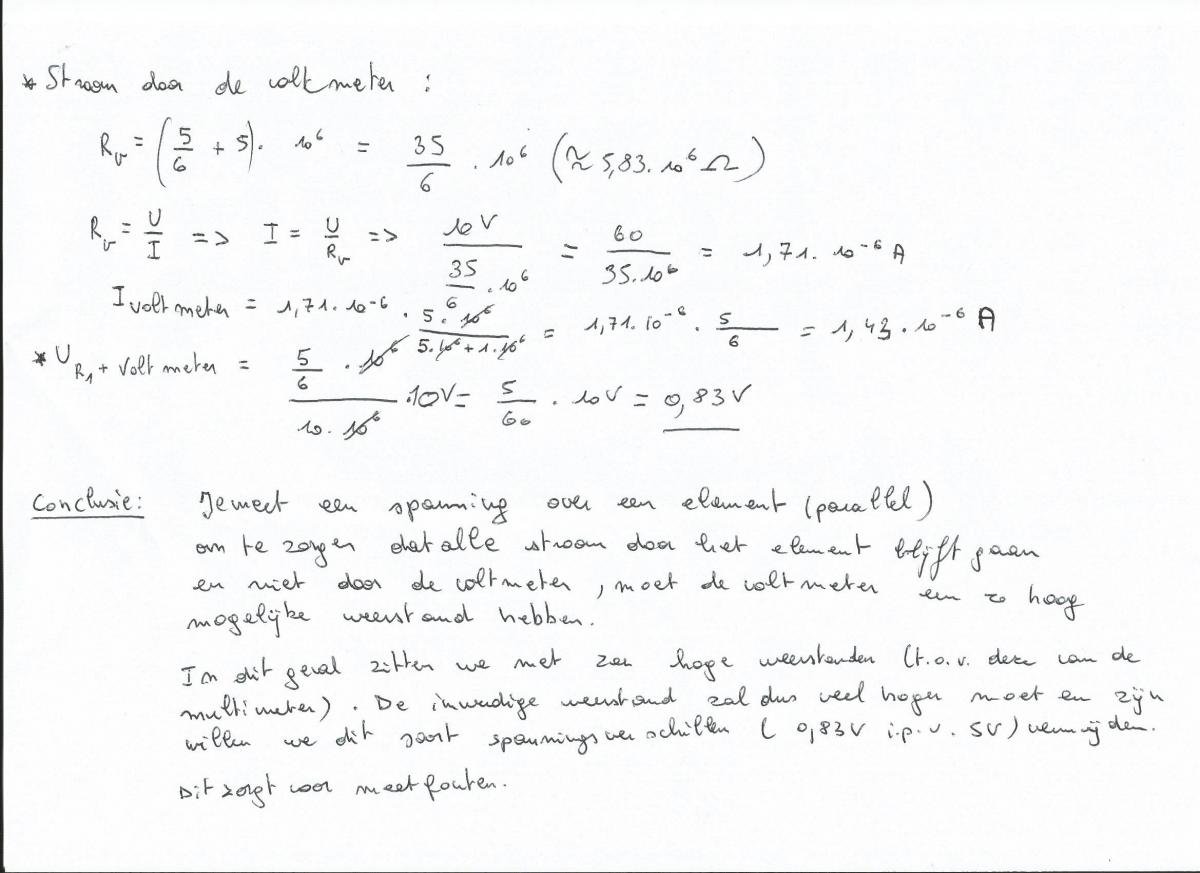 * Stroom door de voltmeter :
R_v = (5/6 + 5) . 10^6 = 35/6 . 10^6 (≈ 5,83. 10^6 Ω)
R_v = U/I => I = U/R_v => 10V / (35/6 . 10^6) = 60 / 35.10^6 = 1,71. 10^-6 A
I voltmeter = 1,71. 10^-6 . 5.10^6 / (5.10^6 + 1.10^6) = 1,71.10^-6 . 5/6 = 1,43 . 10^-6 A
* U_R1 + voltmeter = (5/6 . 10^6) / (10. 10^6) .10V = 5/60 . 10V = 0,83V
Conclusie: Je meet een spanning over een element (parallel)
om te zorgen dat alle stroom door het element blijft gaan
en niet door de voltmeter , moet de voltmeter een zo hoog
mogelijke weerstand hebben.
In dit geval zitten we met zeer hoge weerstanden (t.o.v. deze van de
multimeter) . De inwendige weerstand zal dus veel hoger moeten zijn
willen we dit soort spanningsverschillen ( 0,83V i.p.v. 5V) vermijden.
Dit zorgt voor meetfouten.